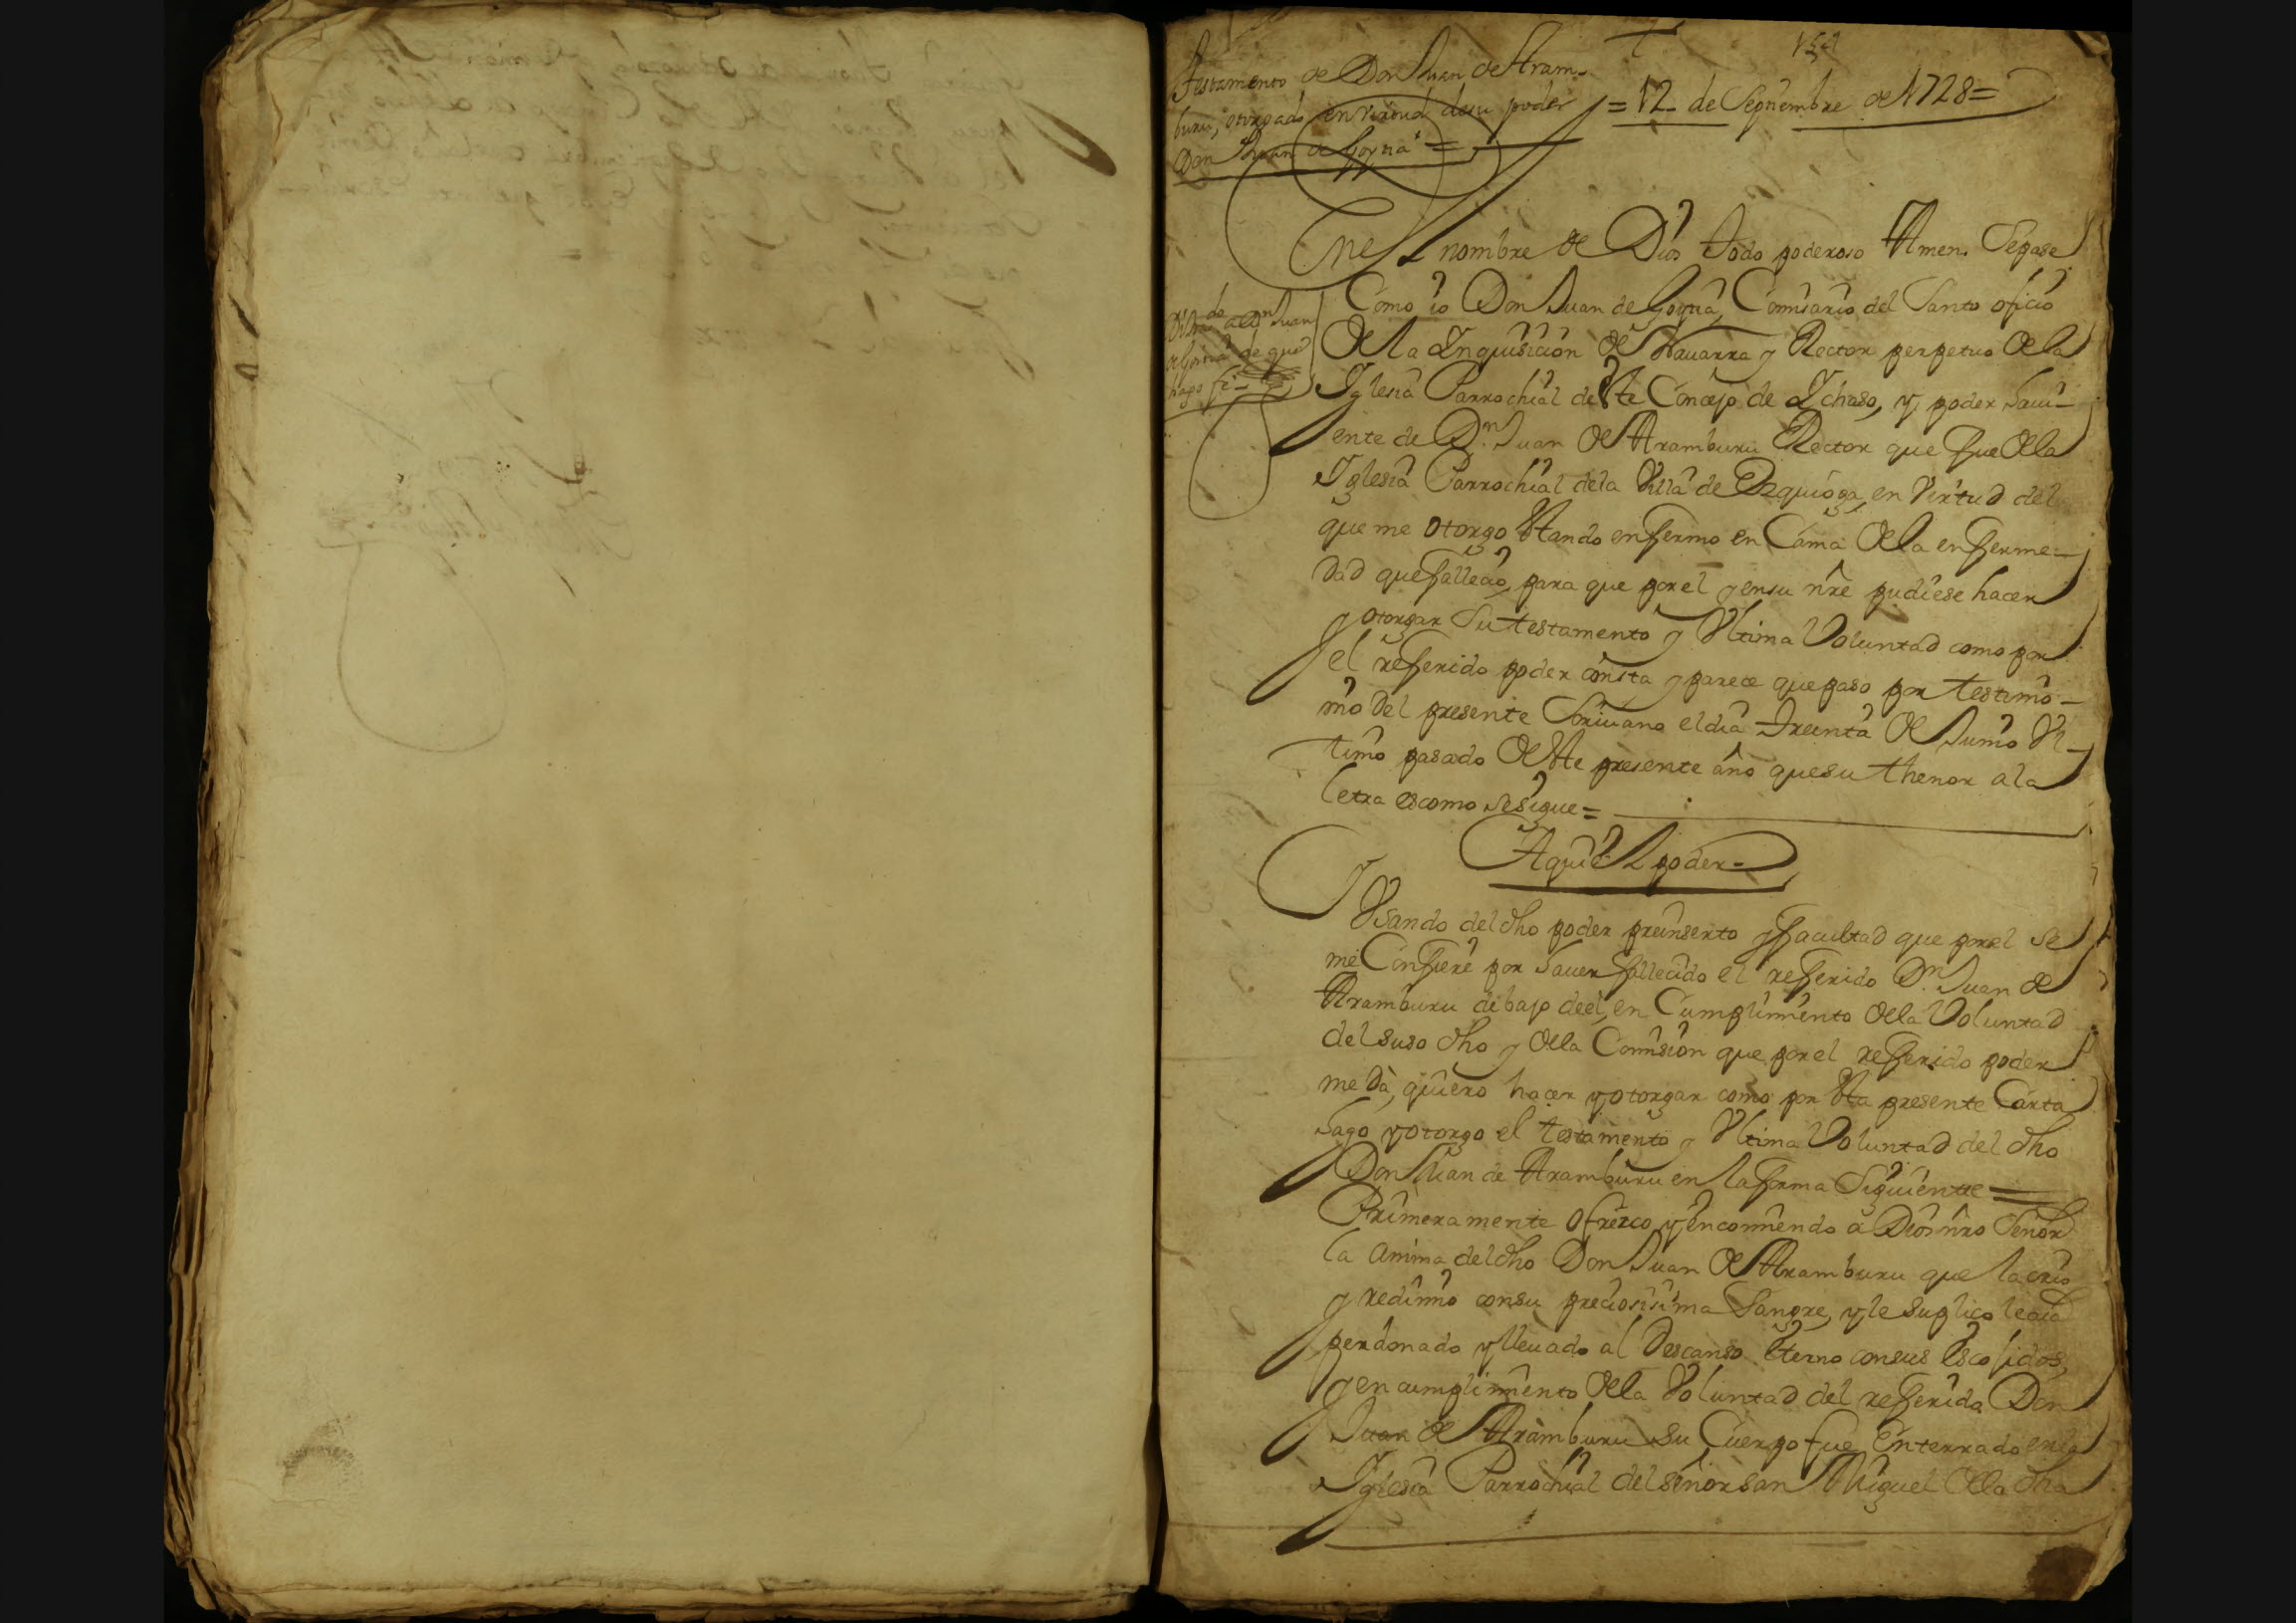 Testamento de Don Juan de Aram-
buru, otorgado en virtud desu poder
Don Juan de Goytia =
= 12 de Septiembre de 1728 =
En el nombre de Dios todo poderoso Amen. Sepase
Como io Don Juan de Goytia, Comisario del Santo oficio
de la Inquisicion de Nauarra y Rector perpetuo de la
Iglesia Parrochial de este Concejo de Ichaso, y poder haui-
ente de Dn. Juan de Aramburu Rector que fue de la
Iglesia Parrochial dela Villa de Ezquioga, en Virtud del
que me otorgo estando enfermo en Cama de la enferme-
dad que fallecio, para que por el y ensu nre pudiese hacer
y otorgar su testamento y Vltima Voluntad como por
el referido poder consta y parece que paso por testimo-
nio del presente Scriuano el dia treinta de Junio Vl-
timo pasado de este presente año quesu thenor ala
letra es como se sigue =
Aqui el poder =
Y Vsando del dho poder preinserto y facultad que por el se
me Confiere por hauer fallecido el referido Dn. Juan de
Aramburu debajo de el, en Cumplimiento de la Voluntad
del suso dho y de la Comision que por el referido poder
me dà, quiero hacer y otorgar como por esta presente Carta
hago y otorgo el testamento y Vltima Voluntad del dho
Don Juan de Aramburu en la forma Siguiente =
Primeramente ofrezco y encomiendo à Dios nro Señor
la anima del dho Don Juan de Aramburu que la crio
y redimio consu preciosisima Sangre, y le suplico le aia
perdonado y lleuado al Descanso Eterno consus Escojidos,
y en cumplimiento de la Voluntad del referido Don
Juan de Aramburu su Cuerpo fue enterrado en la
Iglesia Parrochial del señor san Miguel de la dha
Di trasdo a Dn Juan
de Goitia de que
hago fe